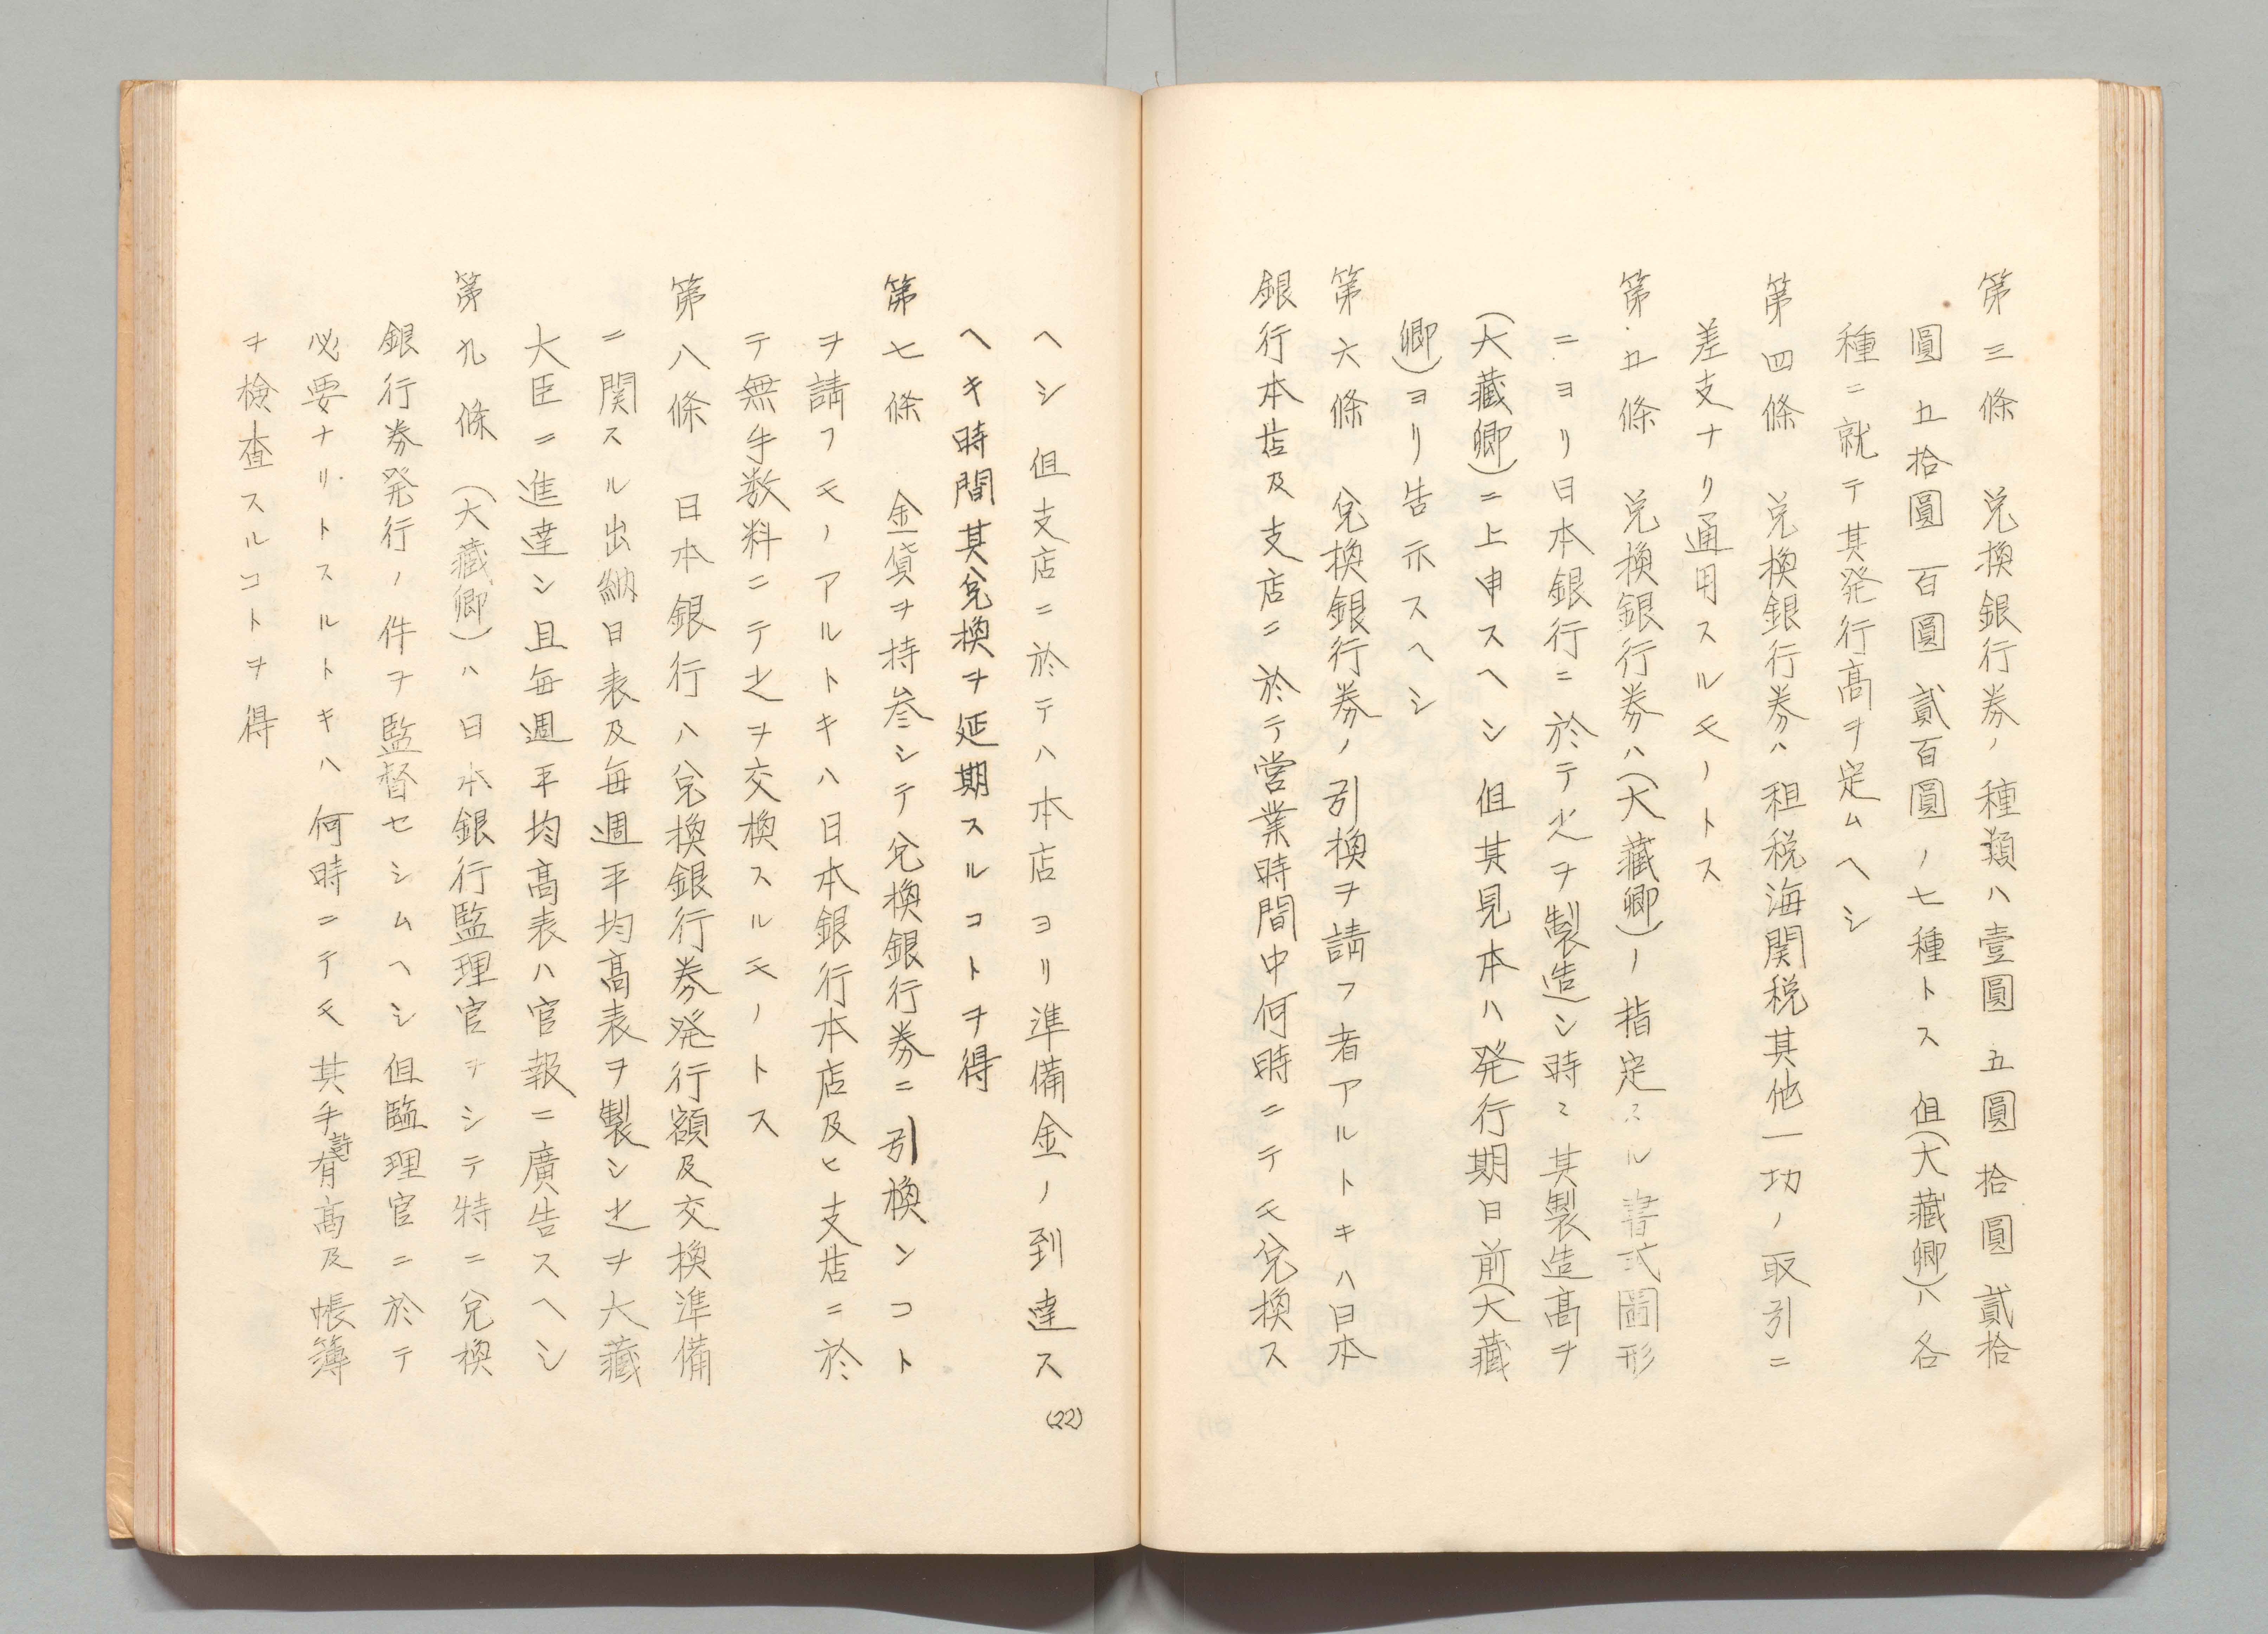 第三條　兌換銀行券ノ種類ハ壹圓 五圓 拾圓 貳拾
圓 五拾圓 百圓 貳百圓ノ七種トス 但(大藏卿)ハ各
種ニ就テ其発行高ヲ定ムヘシ
第四條　兌換銀行券ハ租税海関税其他一切ノ取引ニ
差支ナリ通用スルモノトス
第五條　兌換銀行券ハ(大藏卿)ノ指定スル書式圖形
ニヨリ日本銀行ニ於テ之ヲ製造シ時ニ其製造高ヲ
(大藏卿)ニ上申スヘシ 但其見本ハ発行期日前(大藏
卿)ヨリ告示スヘシ
第六條　兌換銀行券ノ引換ヲ請フ者アルトキハ日本
銀行本店及支店ニ於テ営業時間中何時ニテモ兌換ス
ヘシ 但支店ニ於テハ本店ヨリ準備金ノ到達ス
ヘキ時間其兌換ヲ延期スルコトヲ得
第七條　金貨ヲ持参シテ兌換銀行券ニ引換ンコト
ヲ請フモノアルトキハ日本銀行本店及ヒ支店ニ於
テ無手数料ニテ之ヲ交換スルモノトス
第八條　日本銀行ハ兌換銀行券発行額及交換準備
ニ関スル出納日表及毎週平均高表ヲ製シ之ヲ大藏
大臣ニ進達シ且毎週平均高表ハ官報ニ廣告スヘシ
第九條　(大藏卿)ハ日本銀行監理官ヲシテ特ニ兌換
銀行券発行ノ件ヲ監督セシムヘシ但監理官ニ於テ
必要ナリトスルトキハ何時ニテモ其手許有高及帳簿
ヲ検査スルコトヲ得
(22)